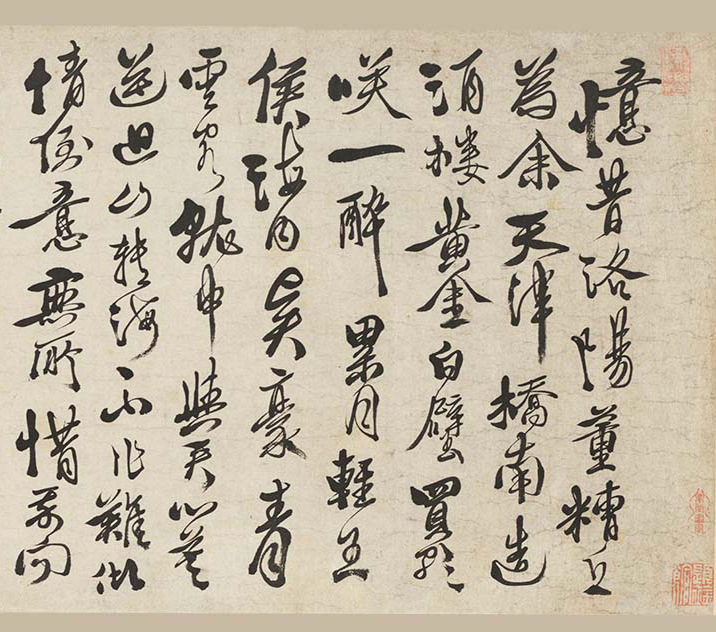 憶昔洛陽董糟丘
為余天津橋南造
酒樓黃金白璧買歌
咲一醉累月輕王
侯海內豪青
雲客就中與君心莫
逆迴山轉海不作難傾
情倒意無所惜我向